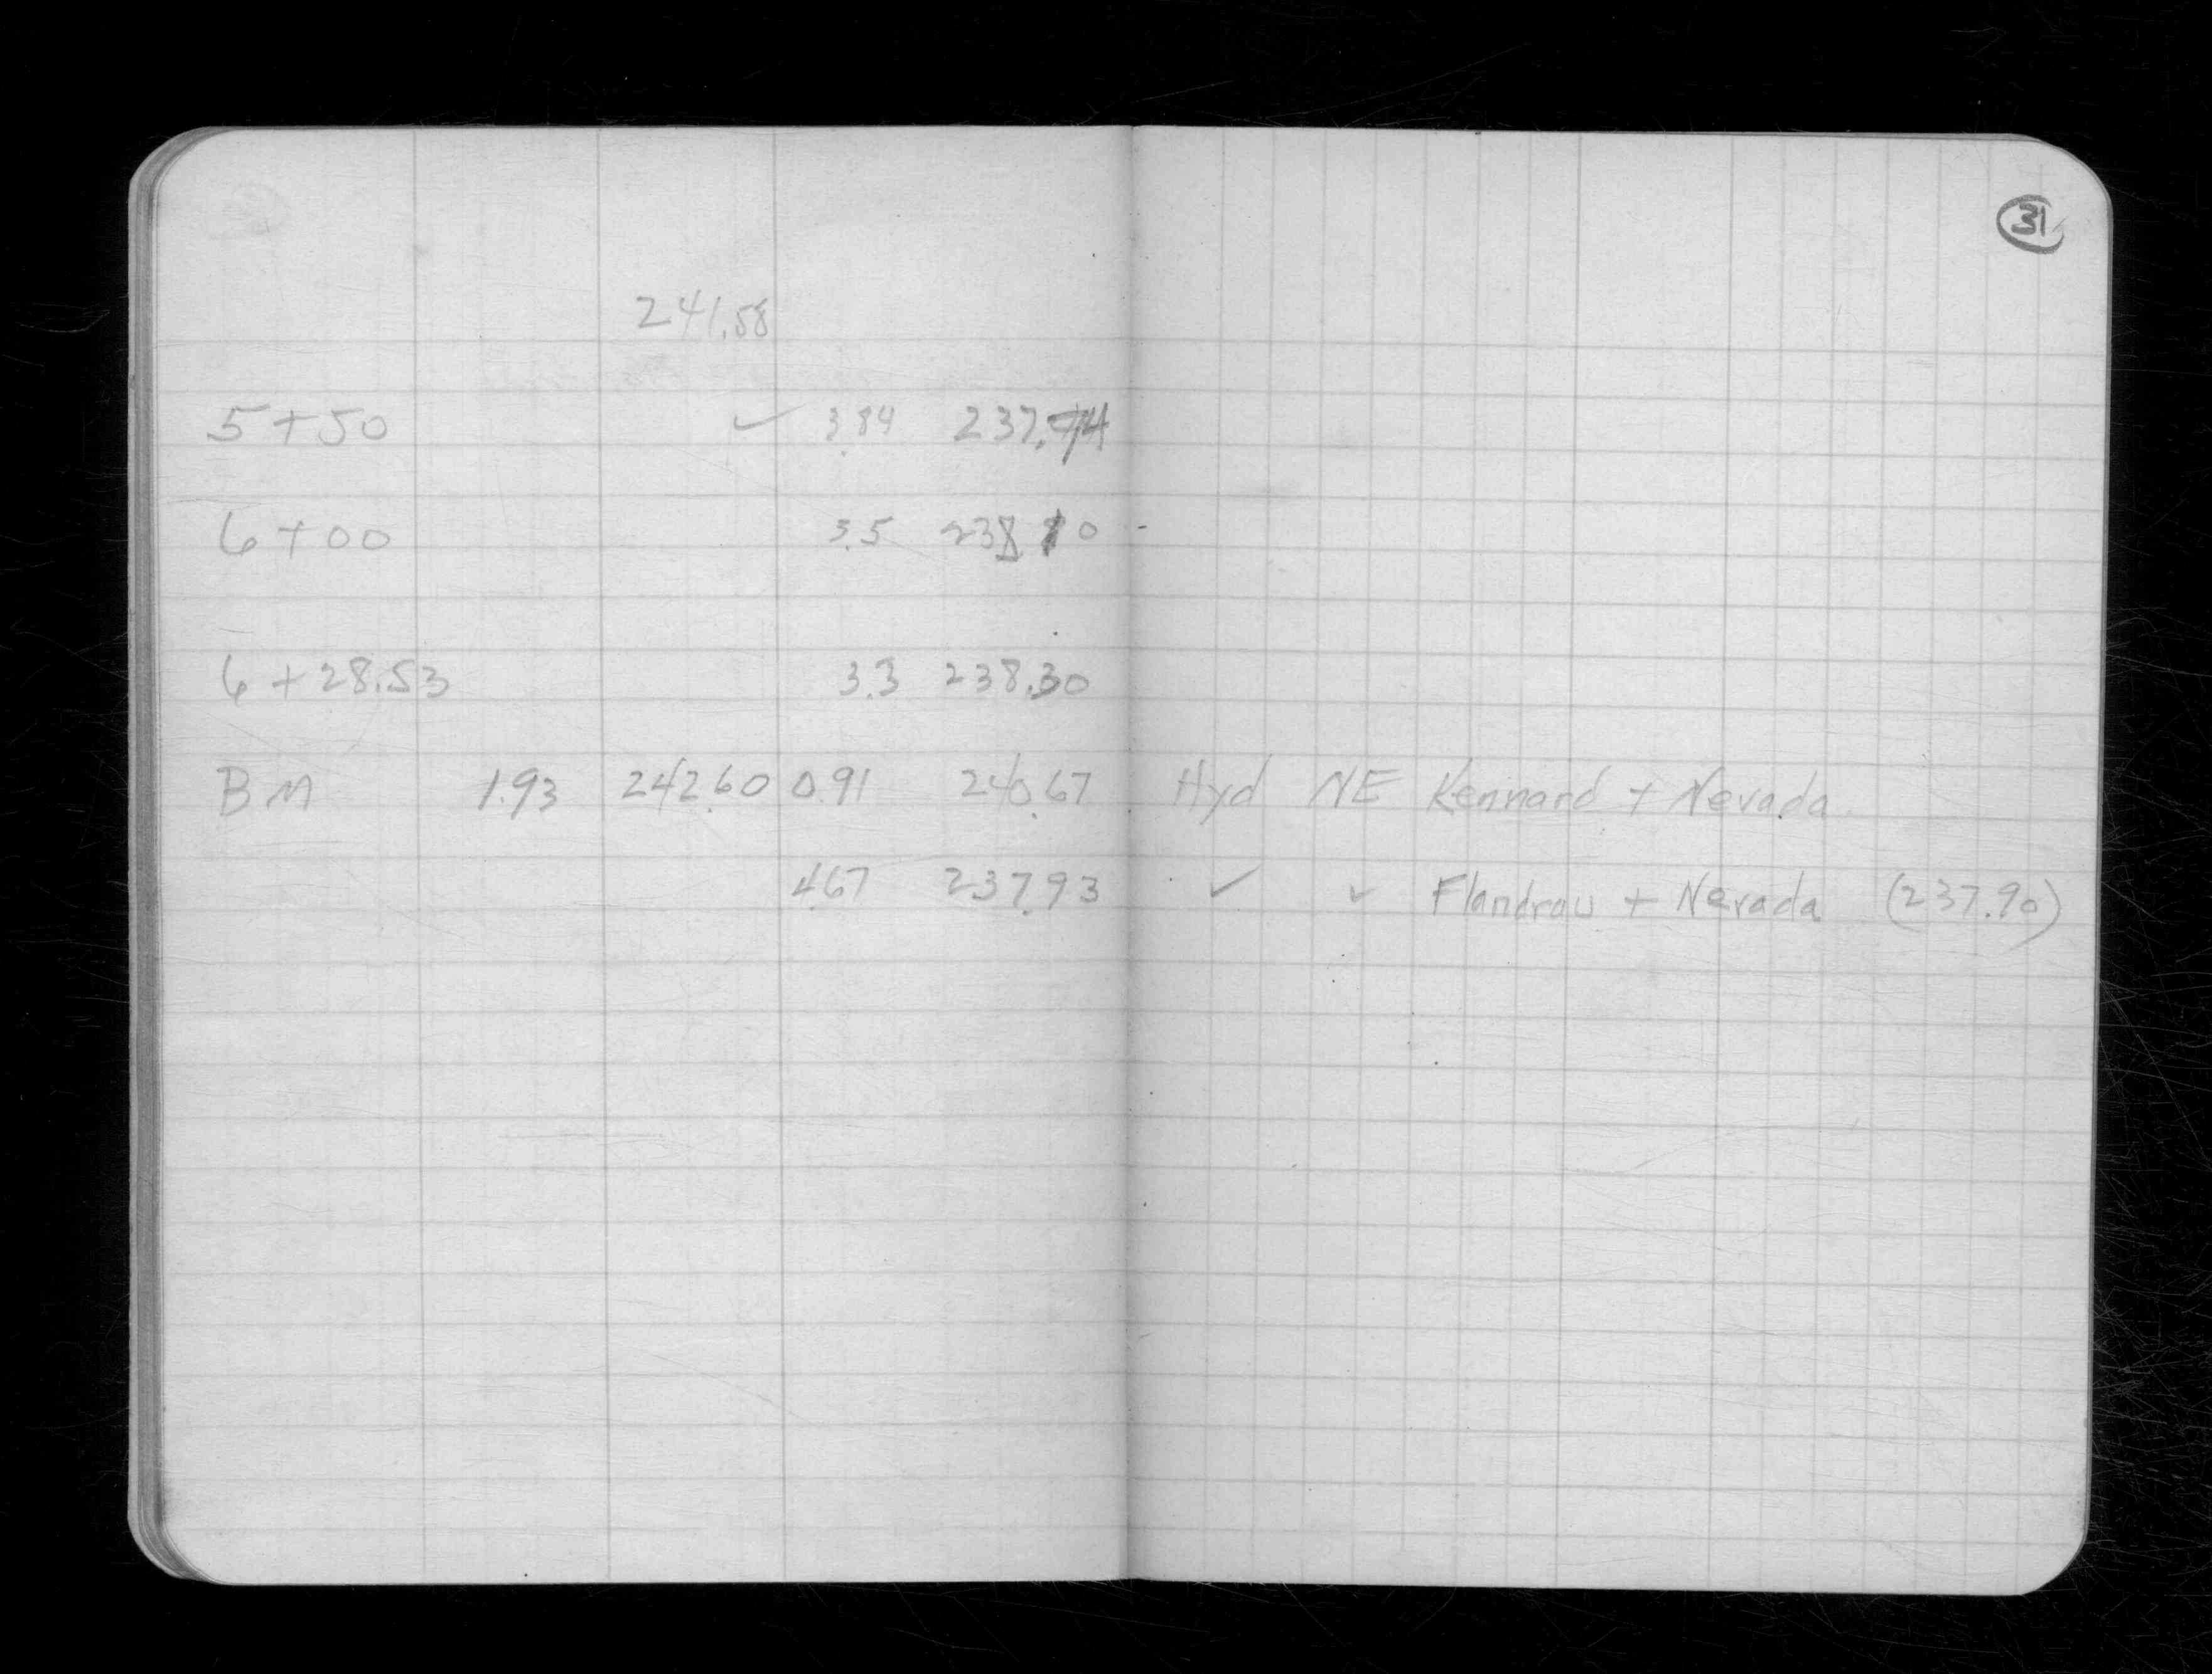 31
241.58
5+50 ✓ 3.84 237.74
6+00 3.5 238.10
6+28.53 3.3 238.30
BM 1.93 242.60 0.91 240.67 Hyd NE Kennard + Nevada
4.67 237.93 ✓ ✓ Flandrau + Nevada (237.90)